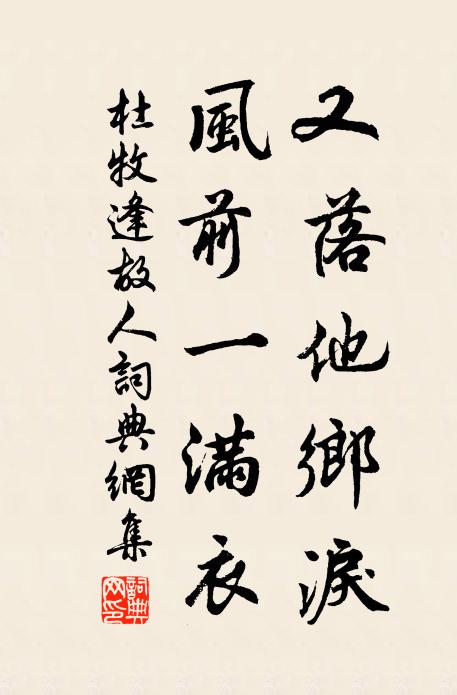 又落他鄉淚
風前一滿衣
杜牧逢故人詞典網集
詞典網印